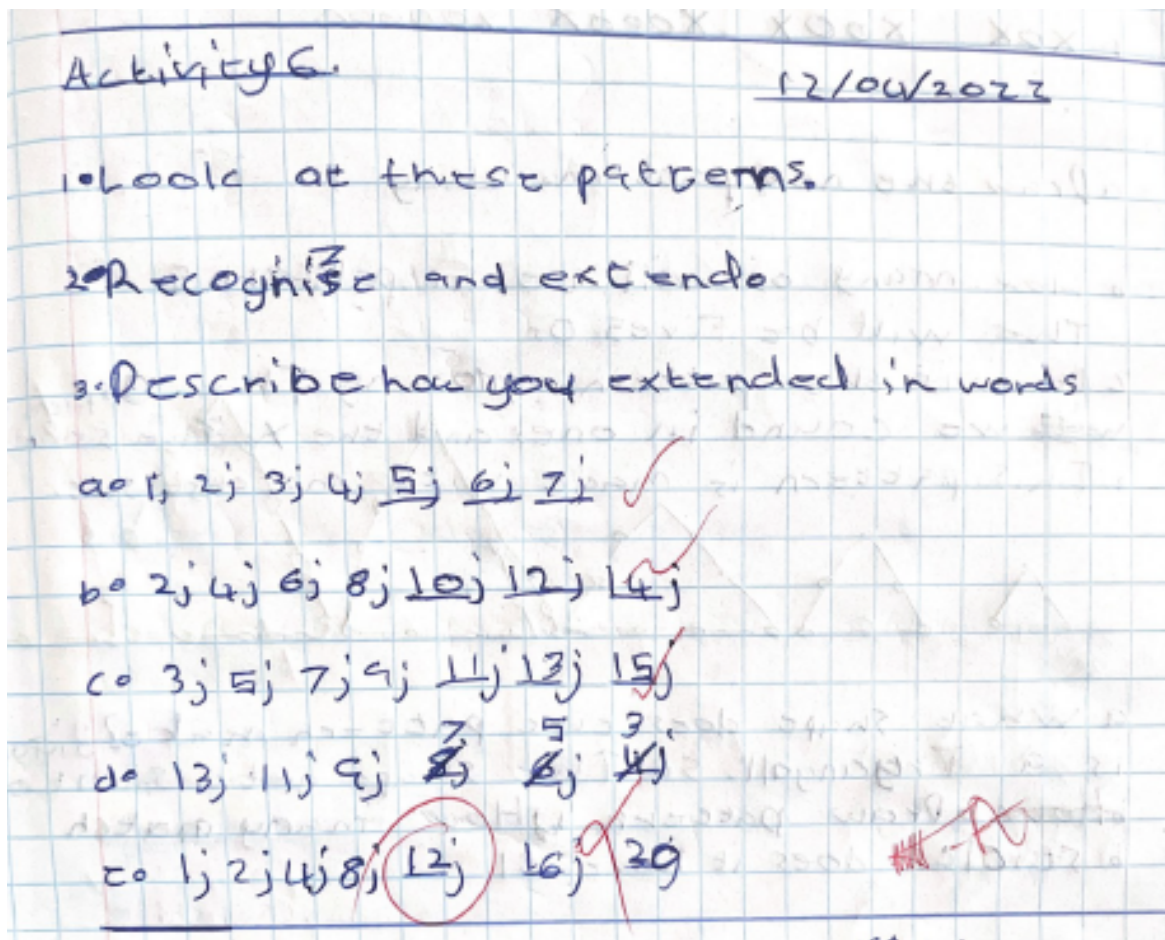 Activity 6.
12/04/2022
1. Look at these patterns.
2. Recognise and extend.
3. Describe how you extended in words
a. 1; 2; 3; 4; 5; 6; 7;
b. 2; 4; 6; 8; 10; 12; 14;
c. 3; 5; 7; 9; 11; 13; 15;
7 5 3
d. 13; 11; 9; 8; 6; 4;
e. 1; 2; 4; 8; 12; 16; 20